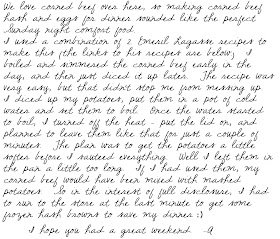 We love corned beef over here, so making corned beef
hash and eggs for dinner sounded like the perfect
Sunday night comfort food.
I used a combination of 2 Emeril Lagasse recipes to
make this (the links to his recipes are below). I
boiled and simmered the corned beef early in the
day, and then just diced it up later. The recipe was
very easy, but that didn't stop me from messing up.
I diced up my potatoes, put them in a pot of cold
water and set them to boil. Once the water started
to boil, I turned off the heat - put the lid on, and
planned to leave them like that for just a couple of
minutes. The plan was to get the potatoes a little
softer before I sauteed everything. Well I left them in
the pan a little too long. If I had used them, my
corned beef would have been mixed with mashed
potatoes. So in the interest of full disclosure, I had
to run to the store at the last minute to get some
frozen hash browns to save my dinner :)
I hope you had a great weekend. -a